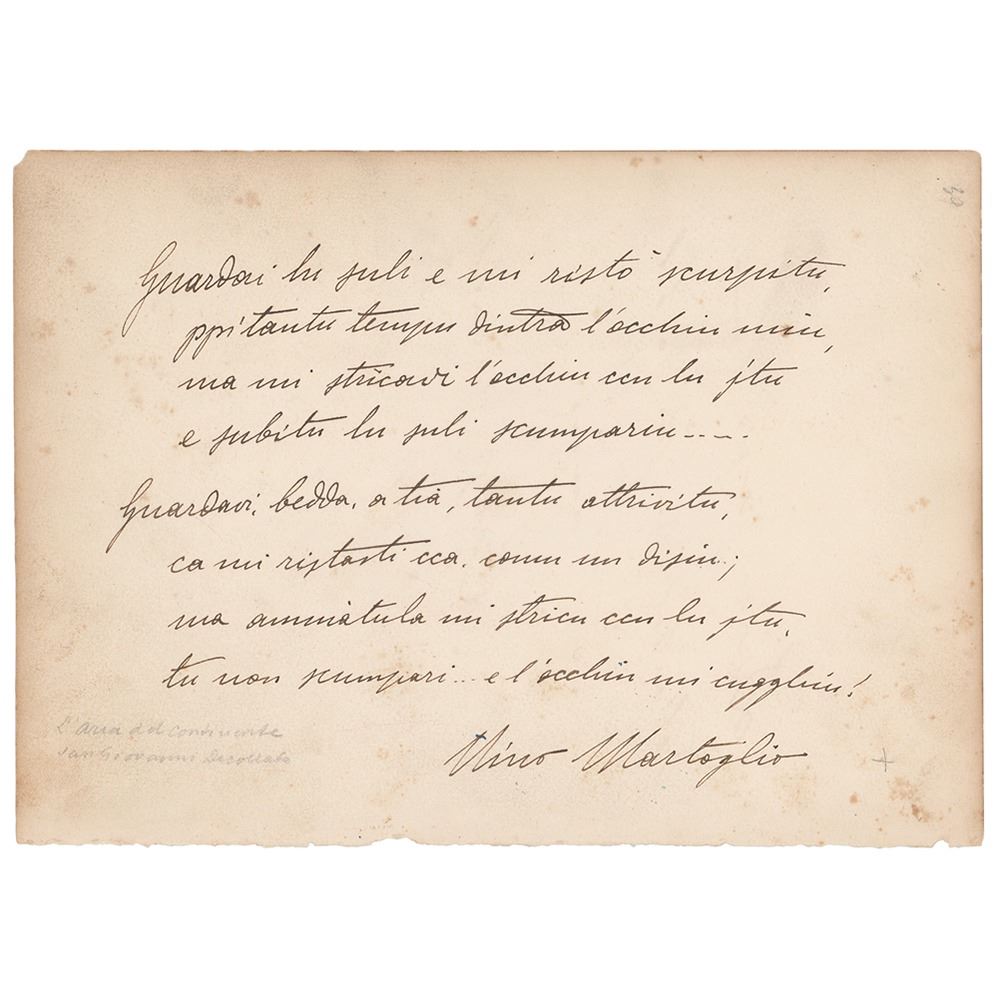 Guardai lu suli e mi ristò scurpitu,
ppi tantu tempu dintra l'occhiu miu,
ma mi stricavi l'occhiu ccu lu jtu
e subitu lu suli scumpariu.....
Guardavi, bedda, a tia, tantu attrivitu,
ca mi ristasti cca, comu un disiu;
ma ammàtula mi stricu ccu lu jtu,
tu non scumpari... e l'occhiu mi cugghiu!
Nino Martoglio
L'aria del continente
San Giovanni Decollato